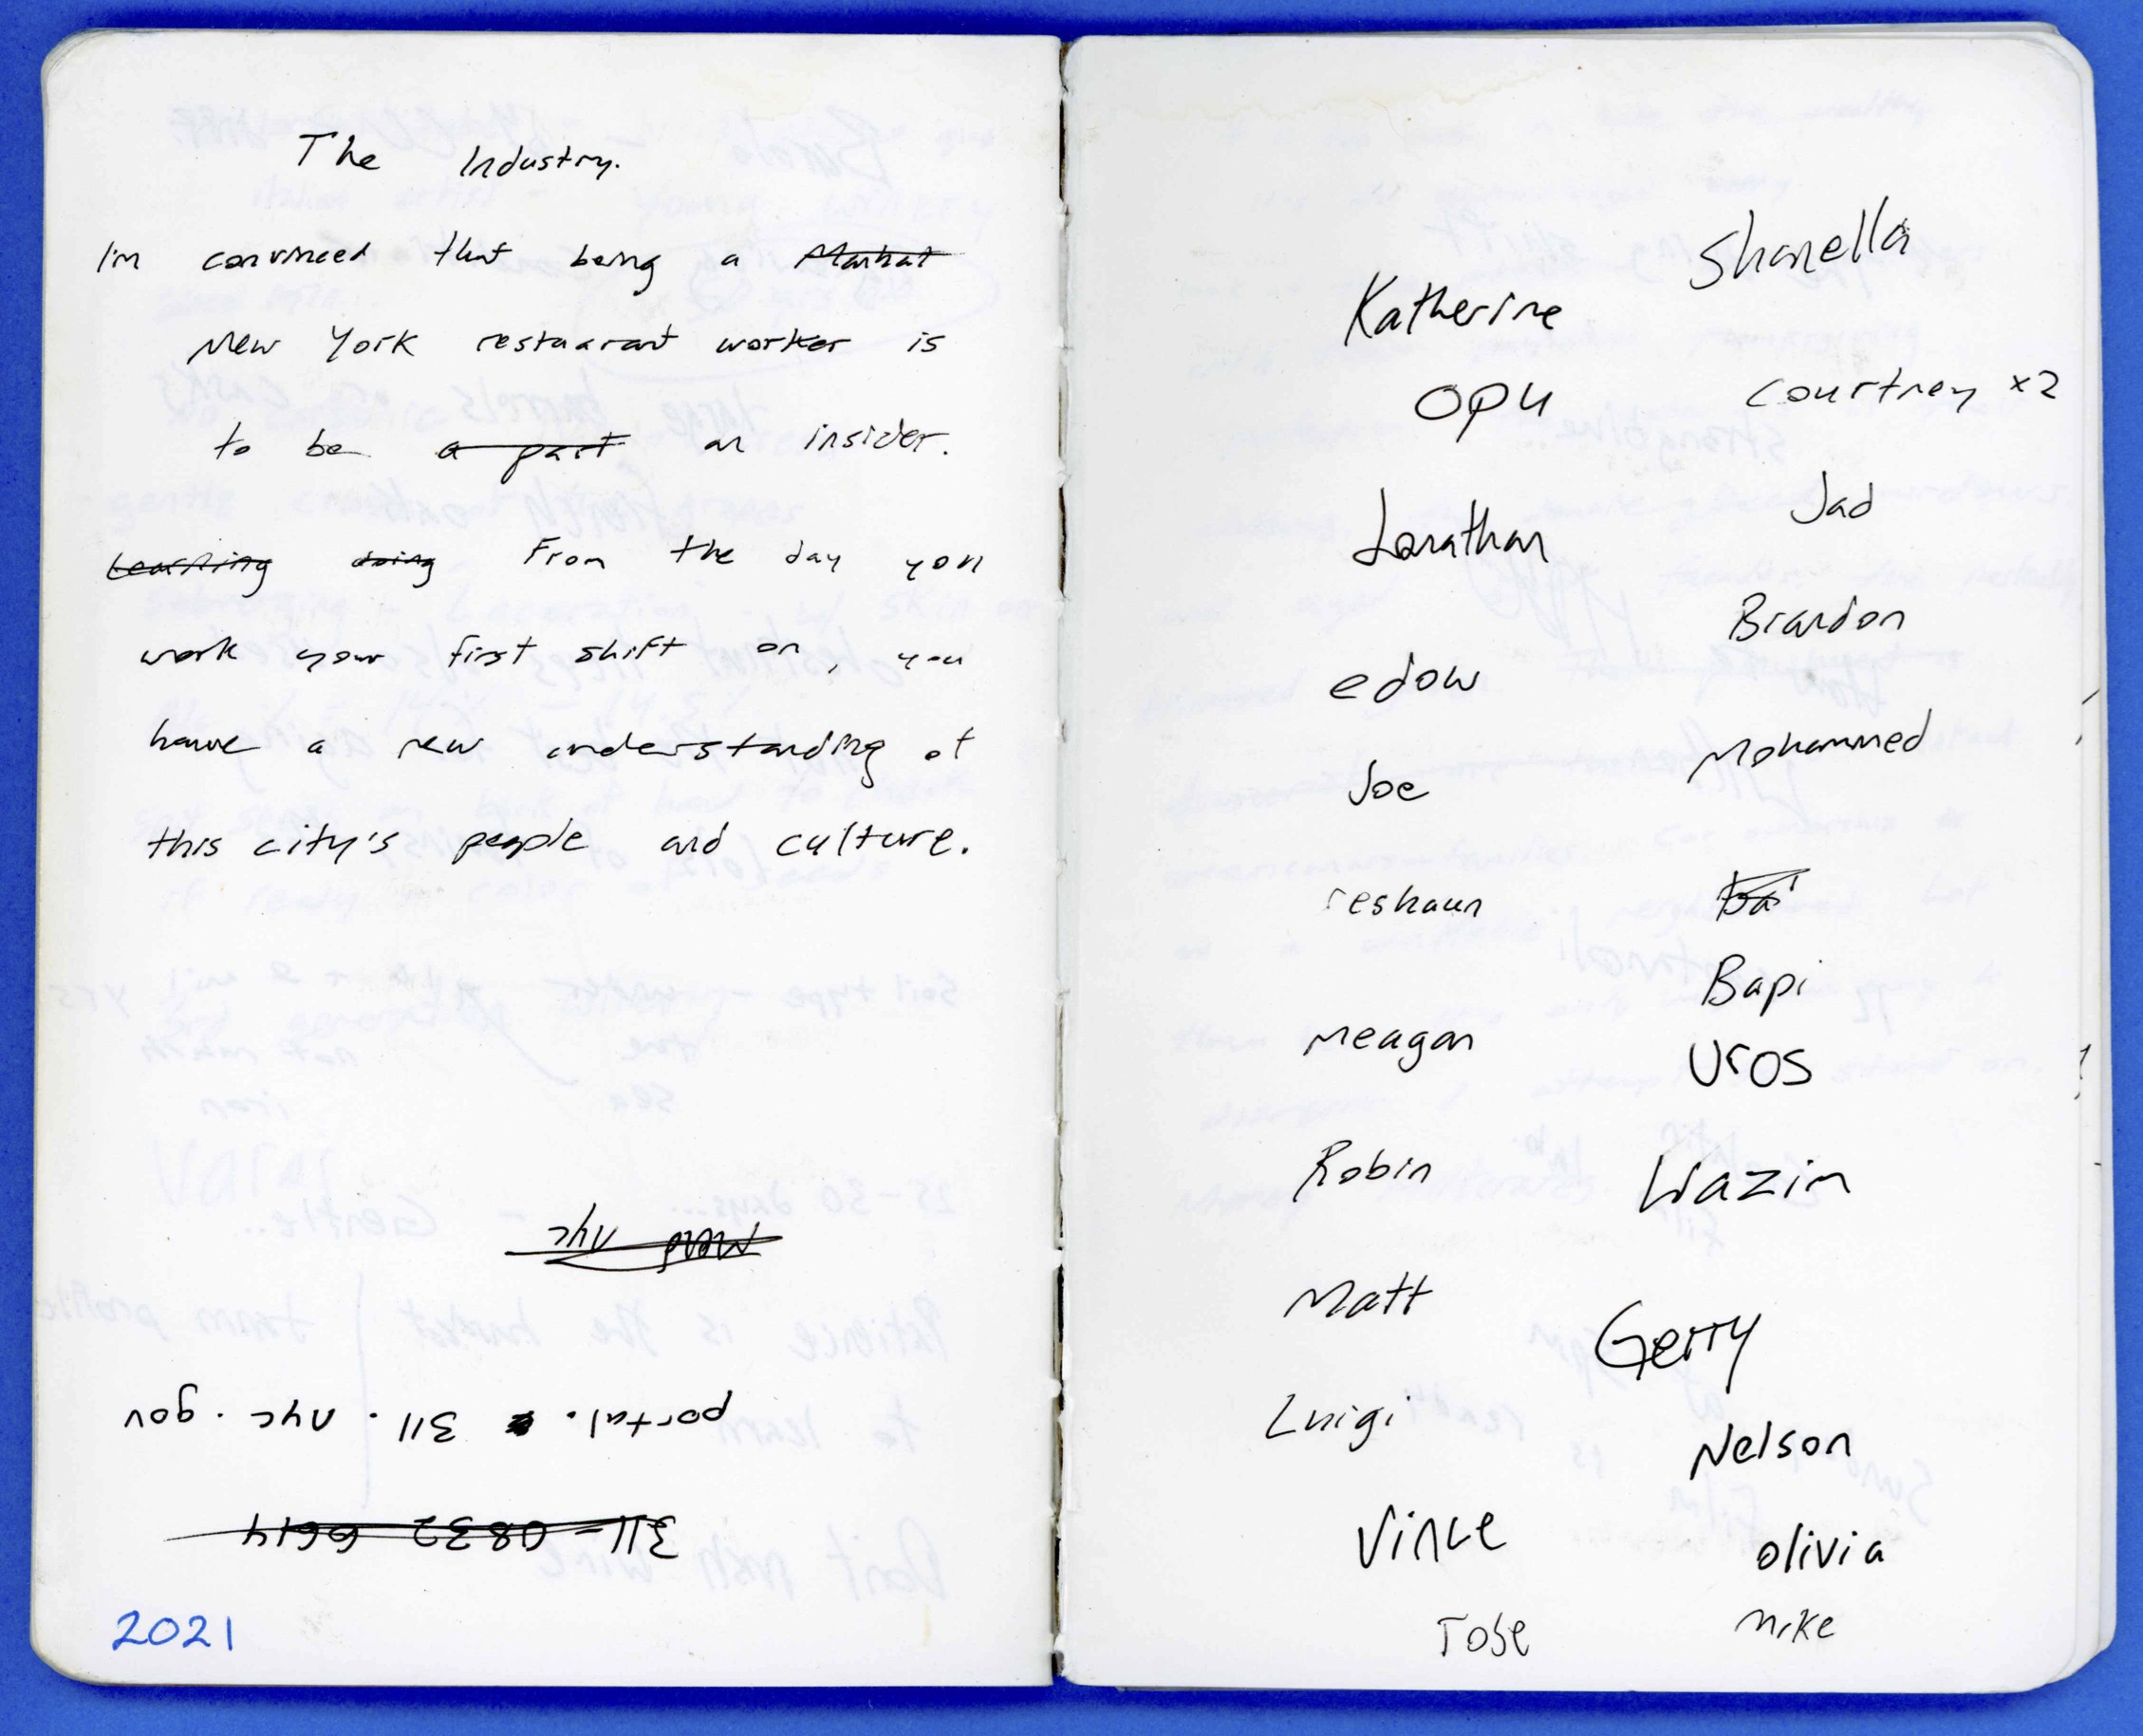 The Industry.
I'm convinced that being a
New York restaurant worker is
to be a part an insider.
Learning doing From the day you
work your first shift on, you
have a new understanding of
this city's people and culture.
nyc
portal. 311. nyc. gov
311-0832 6614
2021
Shanella
Katherine
Opu
Courtney x2
Jonathan
Jad
edow
Brandon
Joe
Mohammed
reshaun
Ba
Meagan
Bapi
Uros
Robin
Wazim
Matt
Gerry
Luigi
Nelson
Vince
olivia
Tobe
Mike